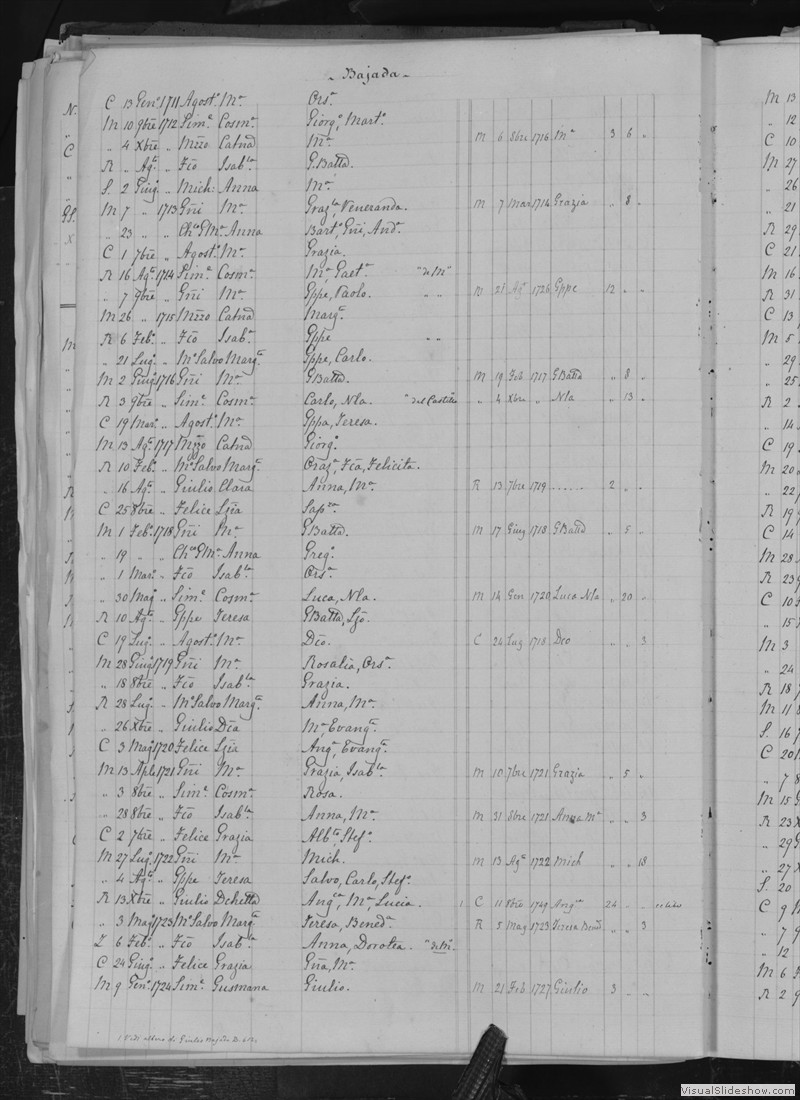 - Bajada -
C 13 Genº 1711 Agostº Mª Orsª
M 10 9bre 1712 Simᵉ Cosmª Giorgº, Martª
" 4 Xbre " Mzzo Catnd Mª M 6 8bre 1716 Mª 3 6 "
R " Agº " Fco Isabˡᵃ GBatta.
S. 2 Giugº " Mich: Anna Mª
M 7 " 1713 Gñi Mª Grazˡᵃ, Veneranda. M 7 Mar 1714 Grazia " 8 "
" 23 " " Anna Bartº, Gñi, Andª
C 1 7bre " Agostº Mª Grazia.
R 16 Agº 1714 Simᵉ Cosmª Mª, Gaetª "de Mª"
" 7 9bre " Gñi Mª Gppe, Paolo. " " 21 Agº 1726 Gppe 12 " "
M 26 " 1715 Mzzo Catnd Margª
R 6 Febº " Fco Isabª Gppe " "
" 21 Lugº " Mº Salvo Margª Gppe, Carlo.
M 2 Giugº 1716 Gñi Mª GBatta. M 19 Feb 1717 GBatta " 8 "
R 3 9bre " Simᵉ Cosmª Carlo, Nla. " 4 Xbre " Nla " 13 "
C 19 Marº " Agostº Mª Gppa, Teresa.
M 13 Agº 1717 Mzzo Catnd Giorgº
R 10 Febº " Mº Salvo Margª Orazº, Fca, Felicita.
" 16 Agº " Giulio Clara Anna, Mª R 13 7bre 1719 ...... 2 " "
C 25 8bre " Felice Lzia
M 1 Febº 1718 Gñi Mª GBatta. M 17 Giug 1718 GBatta " 5 "
" 19 " " Anna Gregº
" 1 Marº " Fco Isabˡᵃ Orsª
" 30 Magº " Simᵉ Cosmª Luca, Nla. M 14 Gen 1720 Luca Nla " 20 "
R 10 Agº " Gppe Teresa GBatta, Lzo.
C 19 Lugº " Agostº Mª Dco. C 24 Lug 1718 Dco " " 3
M 28 Giugº 1719 Gñi Mª Rosalia, Orsª
" 18 8bre " Fco Isabˡᵃ Grazia.
R 28 Lugº " Mº Salvo Margª Anna, Mª
" 26 Xbre " Giulio Dca Mª Evangª
C 3 Magº 1720 Felice Lzia Angª, Evangª
M 13 Aplᵉ 1721 Gñi Mª Grazia, Isabˡᵃ M 10 7bre 1721 Grazia " 5 "
" 3 8bre " Simᵉ Cosmª Rosa.
" 28 8bre " Fco Isabˡᵃ Anna, Mª M 31 8bre 1721 Anna Mª " " 3
C 2 7bre " Felice Grazia Albª, Stefª
M 27 Lugº 1722 Gñi Mª Mich. M 13 Agº 1722 Mich " " 18
" 4 Agº " Gppe Teresa Salvo, Carlo, Stefº
R 13 Xbre " Giulio Angª, Mª, Lucia. 1 C 11 8bre 1749 Angª 24
" 3 Magº 1723 Mº Salvo Margª Teresa, Benedª R 5 Mag 1723 Teresa Bened " " 3
Z 6 Febº " Fco Isabˡᵃ Anna, Dorotea. "de Mª"
C 24 Giugº " Felice Grazia Gña, Mª
M 9 Genº 1724 Simᵉ Gusmana Giulio. M 21 Feb 1727 Giulio 3 " "
1 Vedi albero di Giulio Bajada
VisualSlideshow.com